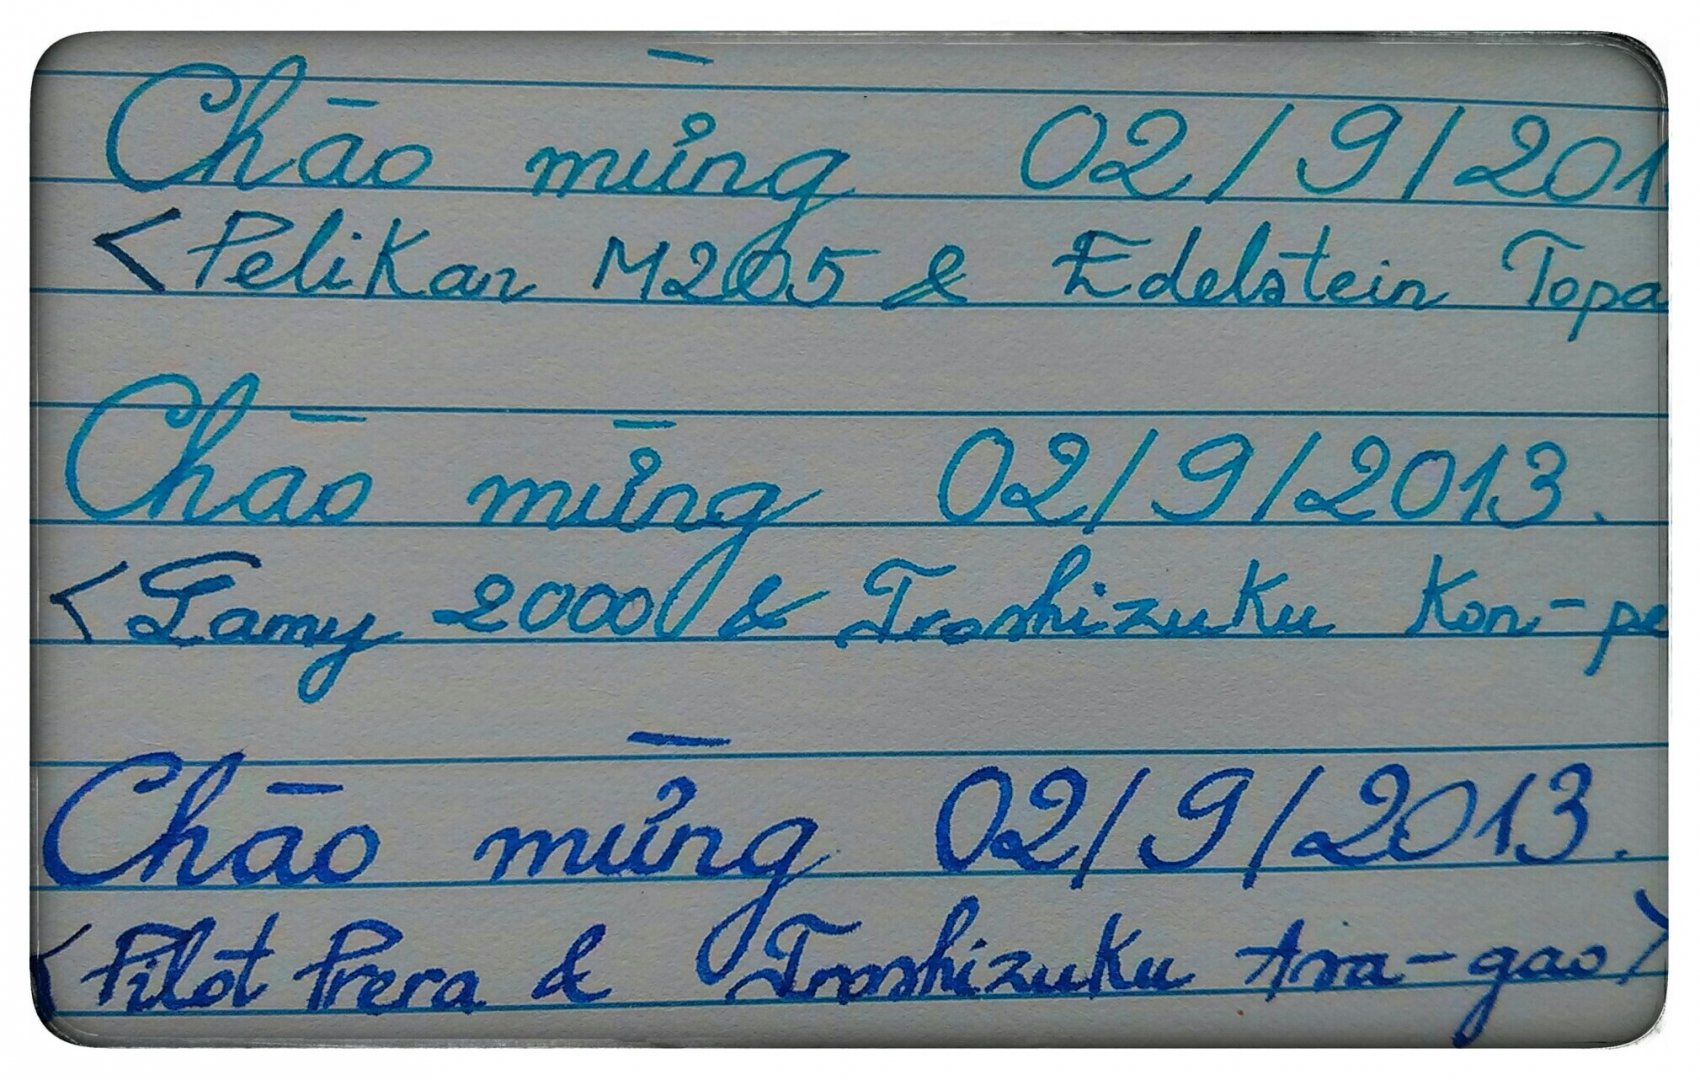 Chào mừng 02/9/201
<Pelikan M205 & Edelstein Topa
Chào mừng 02/9/2013.
<Lamy 2000 & Iroshizuku Kon-pe
Chào mừng 02/9/2013.
<Pilot Prera & Iroshizuku Asa-gao>